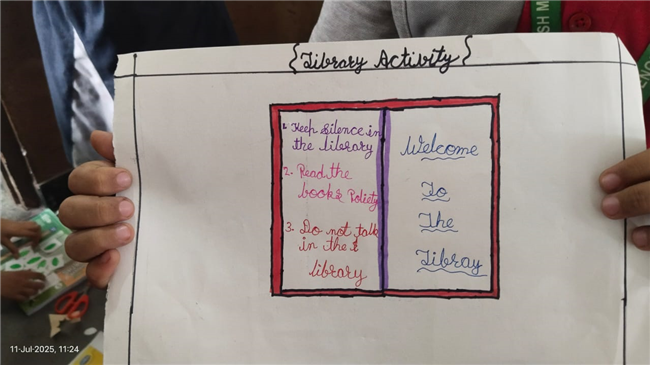 {Library Activity}
1. Keep silence in
the library
2. Read the
books Poliety
3. Do not talk
in the
library
Welcome
To
The
Libray
SH M
11-Jul-2025, 11:24